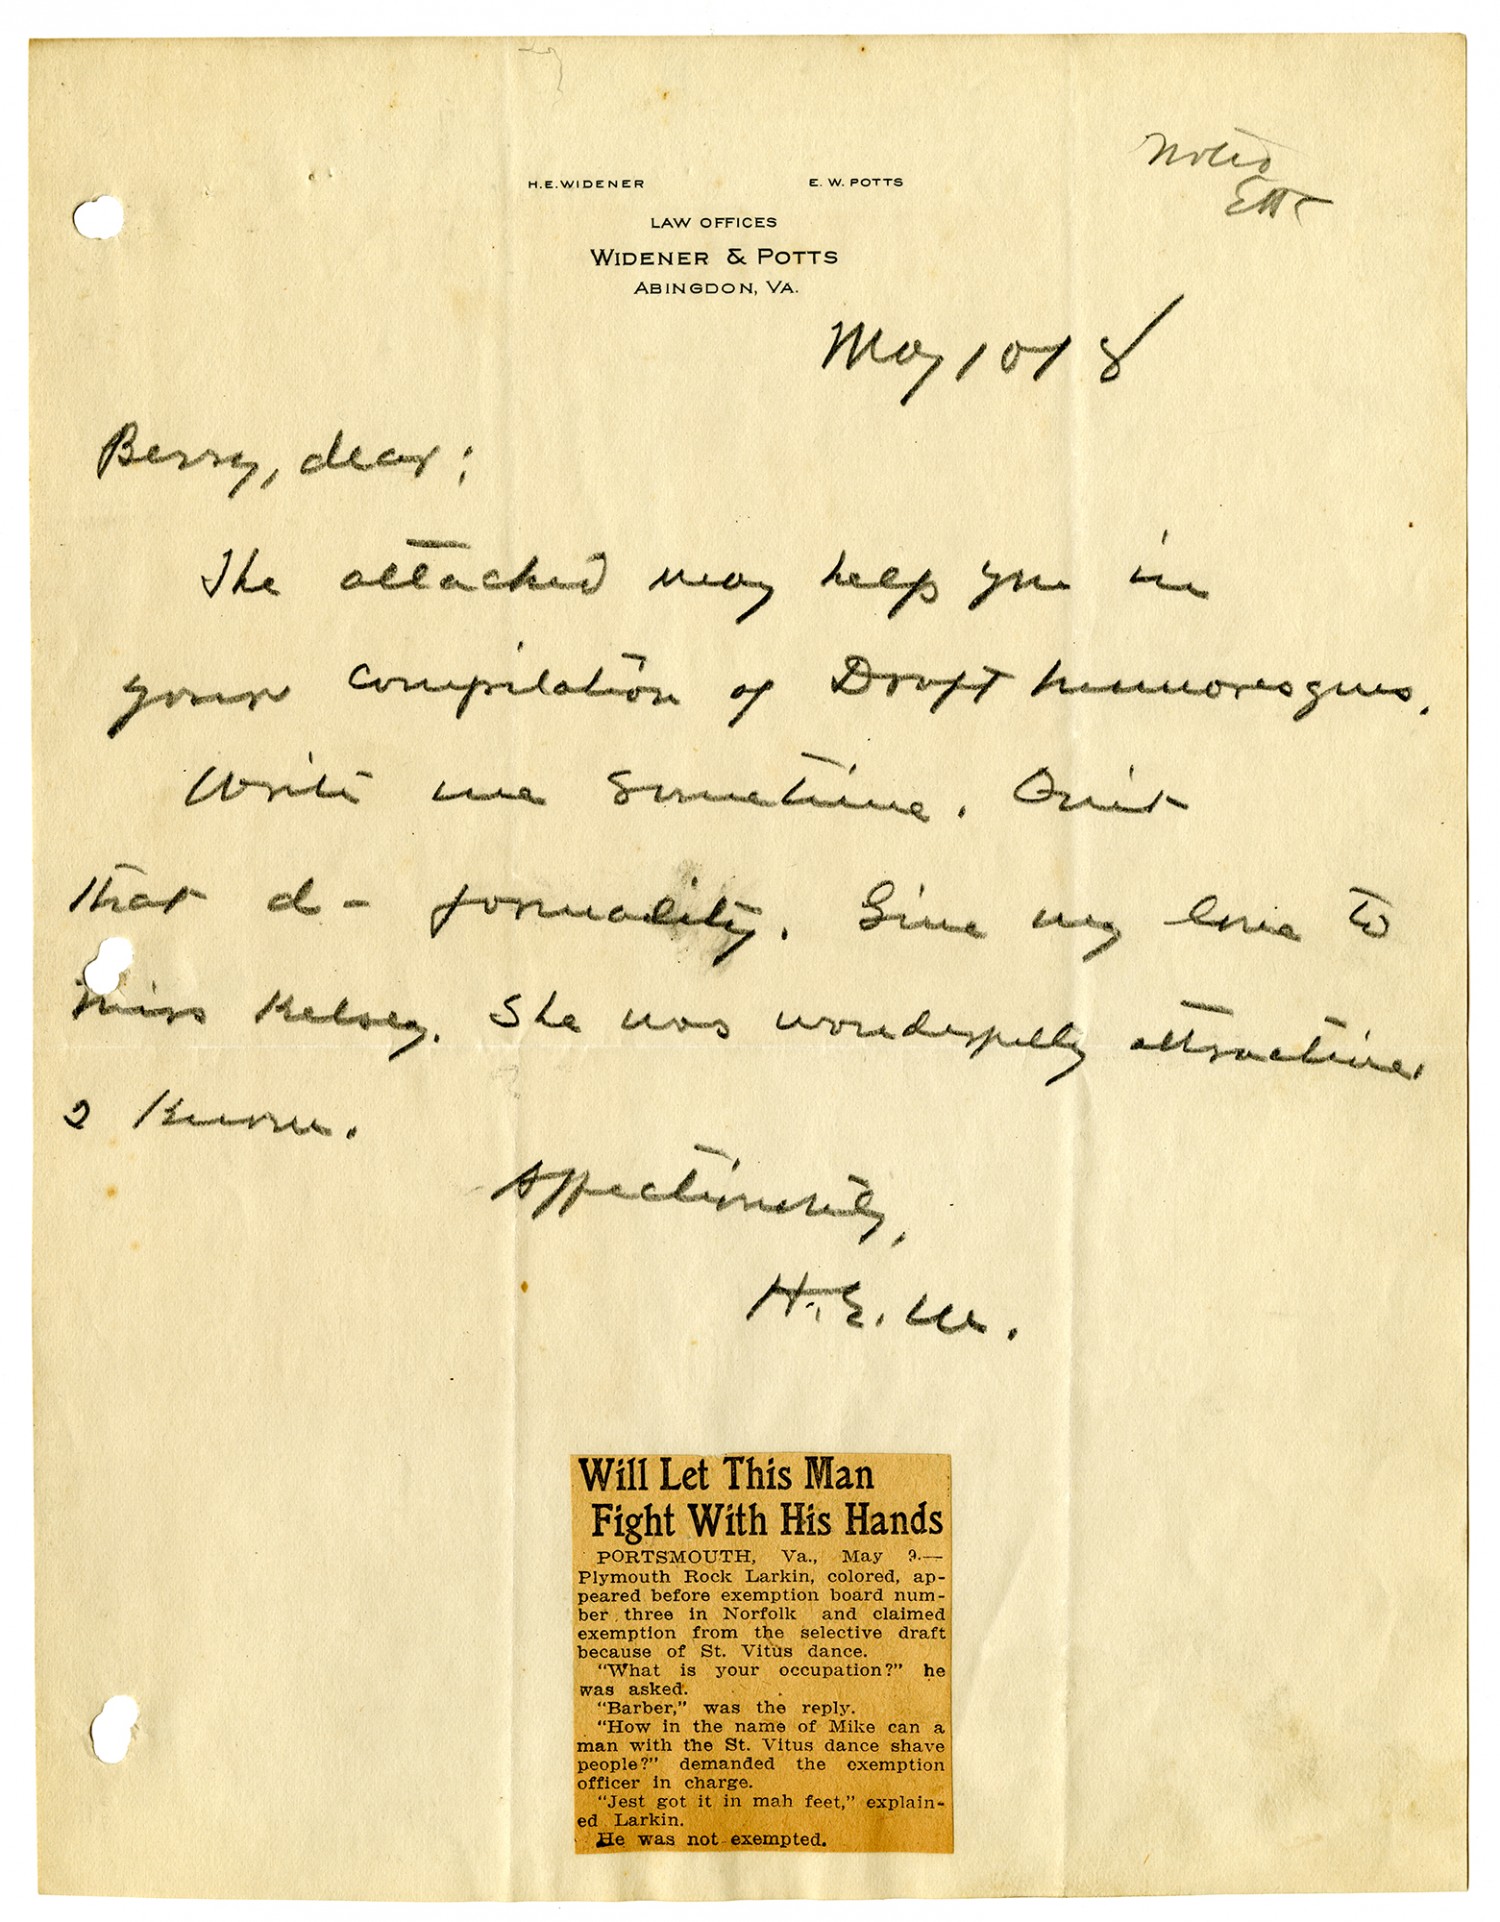 Noted
H.E.WIDENER E. W. POTTS
LAW OFFICES
WIDENER & POTTS
ABINGDON, VA.
May 10/18
Berry, dear;
The attached may help you in
your compilation of Draft humoresques.
Write me sometime. Quit
that d- formality. Give my love to
Miss Kelsey. She was wonderfully attractive,
I know.
Affectionately,
H. E. W.
Will Let This Man
Fight With His Hands
PORTSMOUTH, Va., May 9.—
Plymouth Rock Larkin, colored, ap-
peared before exemption board num-
ber three in Norfolk and claimed
exemption from the selective draft
because of St. Vitus dance.
"What is your occupation?" he
was asked.
"Barber," was the reply.
"How in the name of Mike can a
man with the St. Vitus dance shave
people?" demanded the exemption
officer in charge.
"Jest got it in mah feet," explain-
ed Larkin.
He was not exempted.